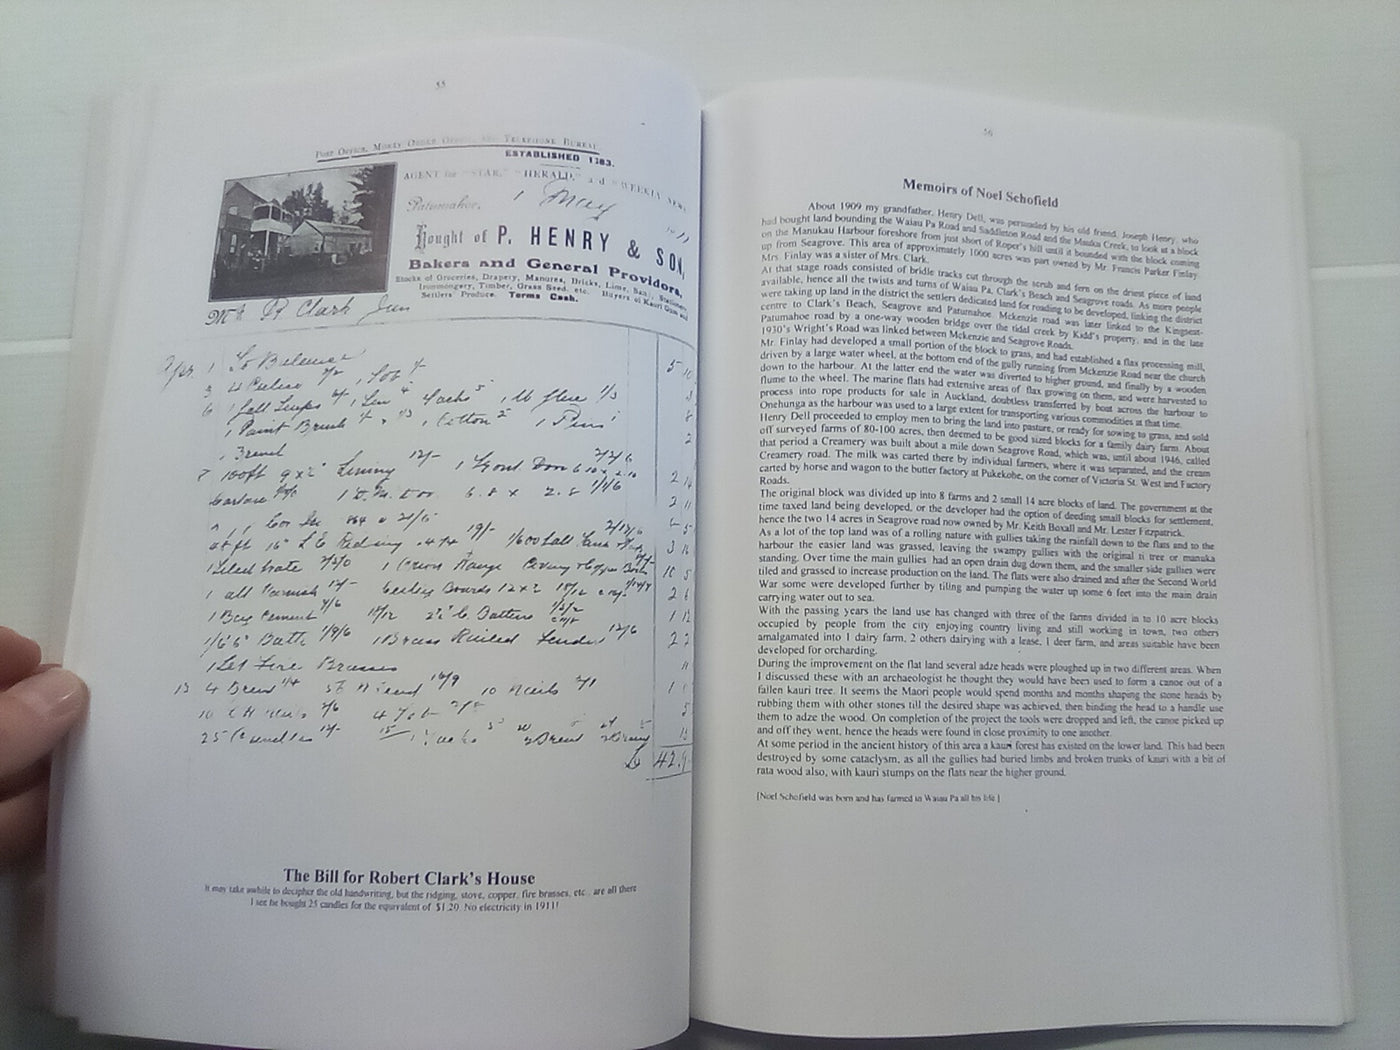 55
POST OFFICE, MONEY ORDER OFFICE, AND TELEPHONE BUREAU.
ESTABLISHED 1883.
AGENT for "STAR," "HERALD," and "WEEKLY NEWS"
Patumahoe, 1 May 1911
Bought of P. HENRY & SON,
Bakers and General Providors,
Stocks of Groceries, Drapery, Manures, Bricks, Lime, Sand, Stationery
Ironmongery, Timber, Grass Seed, etc. Buyers of Kauri Gum and
Settlers' Produce. Terms Cash.
Mr R Clark Jun
Apr. 1 To Balance 5
1 Paint Brush 1 Cotton 1 Pins
1 Bread
100ft 9 x 2 1 Front Door
1 Range
1 Bag Cement Battens
1 6'6" Bath 1 Brass Railed Fender 12/6
1 Set Fire Brasses
13 4 Bread
25 Candles
£ 42.9
The Bill for Robert Clark's House
It may take awhile to decipher the old handwriting, but the ridging, stove, copper, fire brasses, etc., are all there
I see he bought 25 candles for the equivalent of $1.20. No electricity in 1911!
56
Memoirs of Noel Schofield
About 1909 my grandfather, Henry Dell, was persuaded by his old friend, Joseph Henry, who
had bought land bounding the Waiau Pa Road and Saddleton Road and the Mauku Creek, to look at a block
on the Manukau Harbour foreshore from just short of Roper's hill until it bounded with the block coming
up from Seagrove. This area of approximately 1000 acres was part owned by Mr. Francis Parker Finlay.
Mrs. Finlay was a sister of Mrs. Clark.
At that stage roads consisted of bridle tracks cut through the scrub and fern on the driest piece of land
available, hence all the twists and turns of Waiau Pa, Clark's Beach and Seagrove roads. As more people
were taking up land in the district the settlers dedicated land for roading to be developed, linking the district
centre to Clark's Beach, Seagrove and Patumahoe. Mckenzie road was later linked to the Kingseat-
Patumahoe road by a one-way wooden bridge over the tidal creek by Kidd's property, and in the late
1930's Wright's Road was linked between Mckenzie and Seagrove Roads.
Mr. Finlay had developed a small portion of the block to grass, and had established a flax processing mill,
driven by a large water wheel, at the bottom end of the gully running from Mckenzie Road near the church
down to the harbour. At the latter end the water was diverted to higher ground, and finally by a wooden
flume to the wheel. The marine flats had extensive areas of flax growing on them, and were harvested to
process into rope products for sale in Auckland, doubtless transferred by boat across the harbour to
Onehunga as the harbour was used to a large extent for transporting various commodities at that time.
Henry Dell proceeded to employ men to bring the land into pasture, or ready for sowing to grass, and sold
off surveyed farms of 80-100 acres, then deemed to be good sized blocks for a family dairy farm. About
that period a Creamery was built about a mile down Seagrove Road, which was, until about 1946, called
Creamery road. The milk was carted there by individual farmers, where it was separated, and the cream
carted by horse and wagon to the butter factory at Pukekohe, on the corner of Victoria St. West and Factory
Roads.
The original block was divided up into 8 farms and 2 small 14 acre blocks of land. The government at the
time taxed land being developed, or the developer had the option of deeding small blocks for settlement,
hence the two 14 acres in Seagrove road now owned by Mr. Keith Boxall and Mr. Lester Fitzpatrick.
As a lot of the top land was of a rolling nature with gullies taking the rainfall down to the flats and to the
harbour the easier land was grassed, leaving the swampy gullies with the original ti tree or manuka
standing. Over time the main gullies had an open drain dug down them, and the smaller side gullies were
tiled and grassed to increase production on the land. The flats were also drained and after the Second World
War some were developed further by tiling and pumping the water up some 6 feet into the main drain
carrying water out to sea.
With the passing years the land use has changed with three of the farms divided in to 10 acre blocks
occupied by people from the city enjoying country living and still working in town, two others
amalgamated into 1 dairy farm, 2 others dairying with a lease, 1 deer farm, and areas suitable have been
developed for orcharding.
During the improvement on the flat land several adze heads were ploughed up in two different areas. When
I discussed these with an archaeologist he thought they would have been used to form a canoe out of a
fallen kauri tree. It seems the Maori people would spend months and months shaping the stone heads by
rubbing them with other stones till the desired shape was achieved, then binding the head to a handle use
them to adze the wood. On completion of the project the tools were dropped and left, the canoe picked up
and off they went, hence the heads were found in close proximity to one another.
At some period in the ancient history of this area a kauri forest has existed on the lower land. This had been
destroyed by some cataclysm, as all the gullies had buried limbs and broken trunks of kauri with a bit of
rata wood also, with kauri stumps on the flats near the higher ground.
[Noel Schofield was born and has farmed in Waiau Pa all his life.]